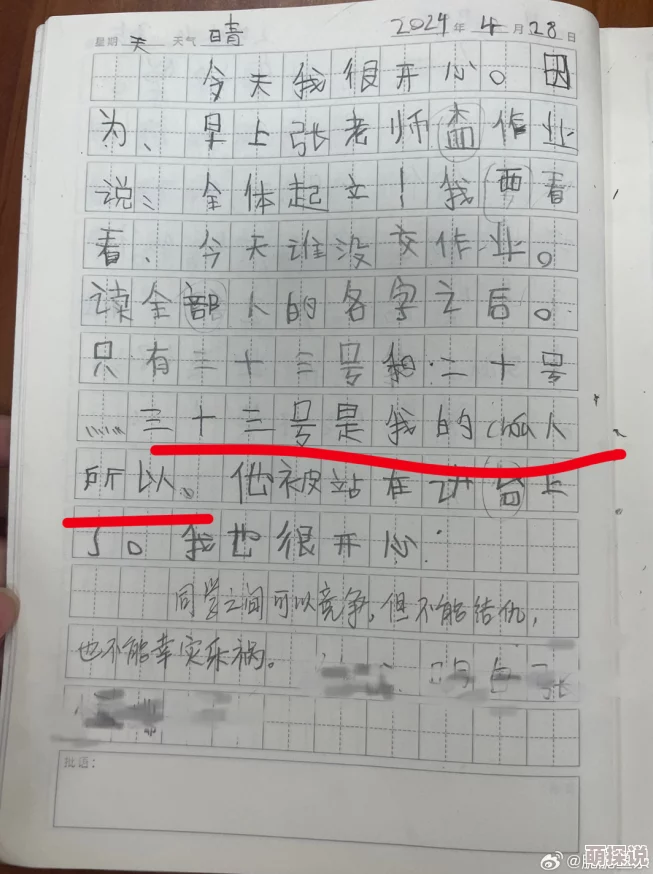 星期 天 天气 晴 2024年4月28日
今天我很开心。因
为、早上张老师 作业
说:全体起立！我要看
看、今天谁没交作业。
读全部人的名字之后。
只有三十三号和二十号
……三十三号是我的chou人
所以、他被站在讲台上
了。我也很开心.
同学之间可以竞争,但不能结仇,
也不能幸灾乐祸。
批语:
萌探说